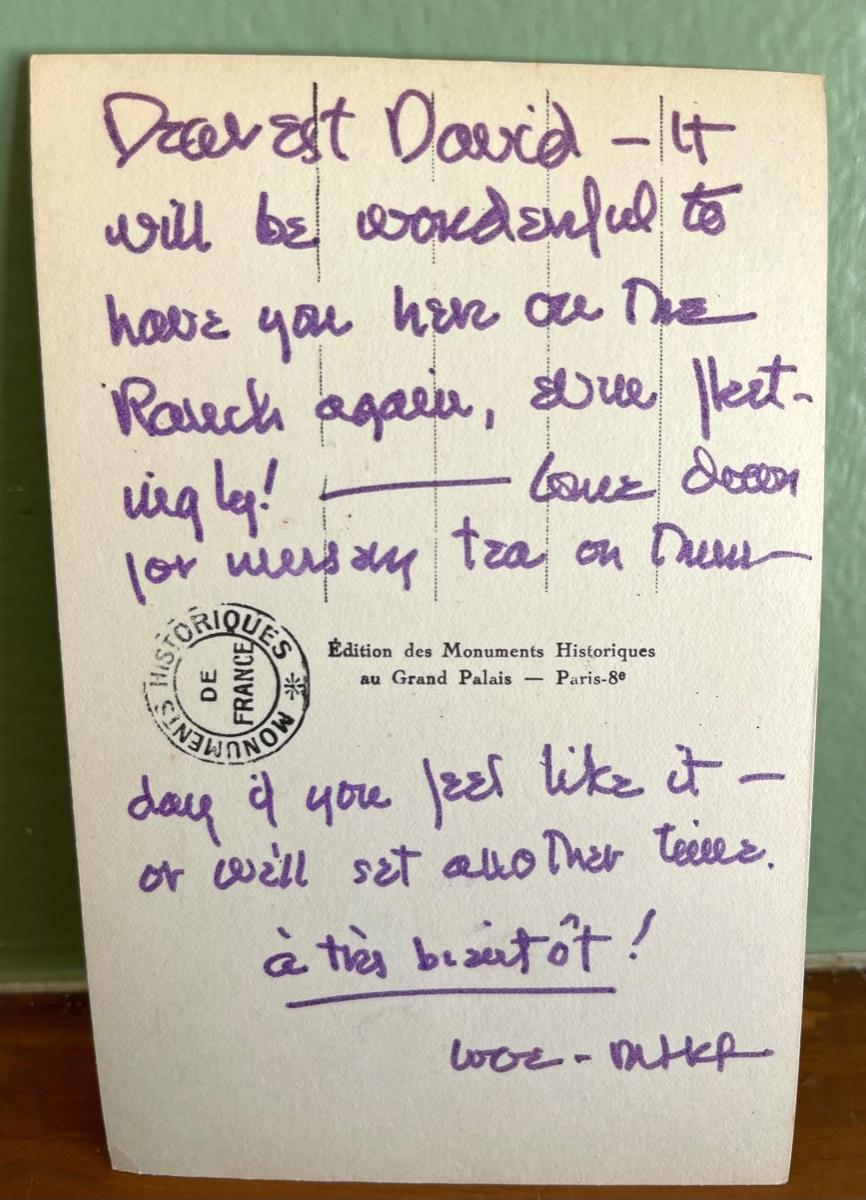 Dearest David – It
will be wonderful to
have you here on the
Ranch again, even fleet-
ingly! —— Come down
for mersday tea on Thurs-
day if you feel like it –
or we'll set another time.
à très bientôt !
love -
MONUMENTS HISTORIQUES
DE FRANCE
Édition des Monuments Historiques
au Grand Palais — Paris-8e